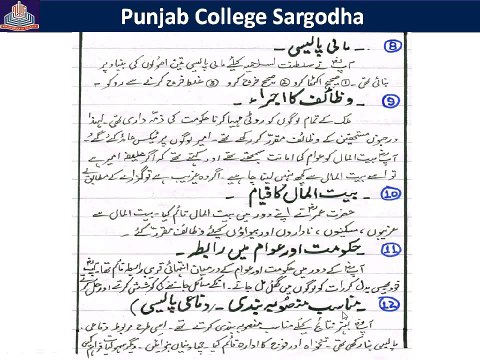 Punjab College Sargodha
⑧ مالی پالیسی ۔
آپؓ نے سلطنت کے لیے مالی پالیسی تین اصولوں کی بنیاد پر
بنائی تھی ۔ ① صحیح اکٹھا کرو ② صحیح خرچ کرو ③ غلط خرچ کرنے سے روکو ۔
⑨ وظائف کا اجراء ۔
ملک کے تمام لوگوں کو روٹی مہیا کرنا حکومت کی ذمہ داری تھی ۔ لہذا
مستحقین کے وظائف مقرر کر رکھے تھے ۔ امیر لوگوں پر ٹیکس عائد کئے گئے
آپؓ بیت المال کو عوام کی امانت سمجھتے تھے اور کہتے تھے کہ اگر خلیفہ امیر ہے
تو اسے بیت المال سے کچھ نہیں لینا چاہیے ۔ اگر وہ غریب ہے تو گزارے کے مطابق لے
⑩ بیت المال کا قیام ۔
حضرت عمرؓ نے اپنے دور میں بیت المال قائم کیا ۔ بیت المال سے
غریبوں ، مسکینوں ، ناداروں اور بیواؤں کیلئے وظائف مقرر کئے ۔
⑪ حکومت اور عوام میں رابطہ ۔
آپؓ کے دور میں حکومت اور عوام کے درمیان انتہائی قریبی رابطہ قائم تھا
لوگوں میں گھل مل جاتے ۔ انکے مسائل جاننے کی کوشش کرتے اور حل کرتے
⑫ مناسب منصوبہ بندی ۔ (دفاعی پالیسی)
آپؓ بہتر نتائج کیلئے مناسب منصوبہ بندی کرتے تھے ۔ اسی طرح مربوط دفاعی
پالیسی بنا رکھی تھی ۔ تنخواہ اور فوج کا ادارہ قائم کیا ۔ چھاؤنیاں بنوائیں ۔